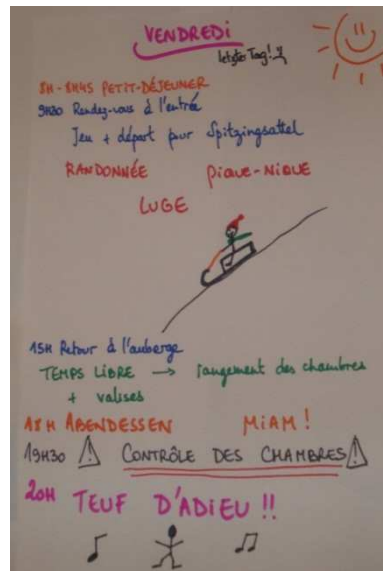 VENDREDI
letzter Tag!
8H - 8H45 PETIT-DÉJEUNER
9H30 Rendez-vous à l'entrée
Jeu + départ pour Spitzingsattel
RANDONNÉE PIQUE-NIQUE
LUGE
15H Retour à l'auberge
TEMPS LIBRE → rangement des chambres
+ valises
18H ABENDESSEN MIAM!
19H30 CONTRÔLE DES CHAMBRES
20H TEUF D'ADIEU !!